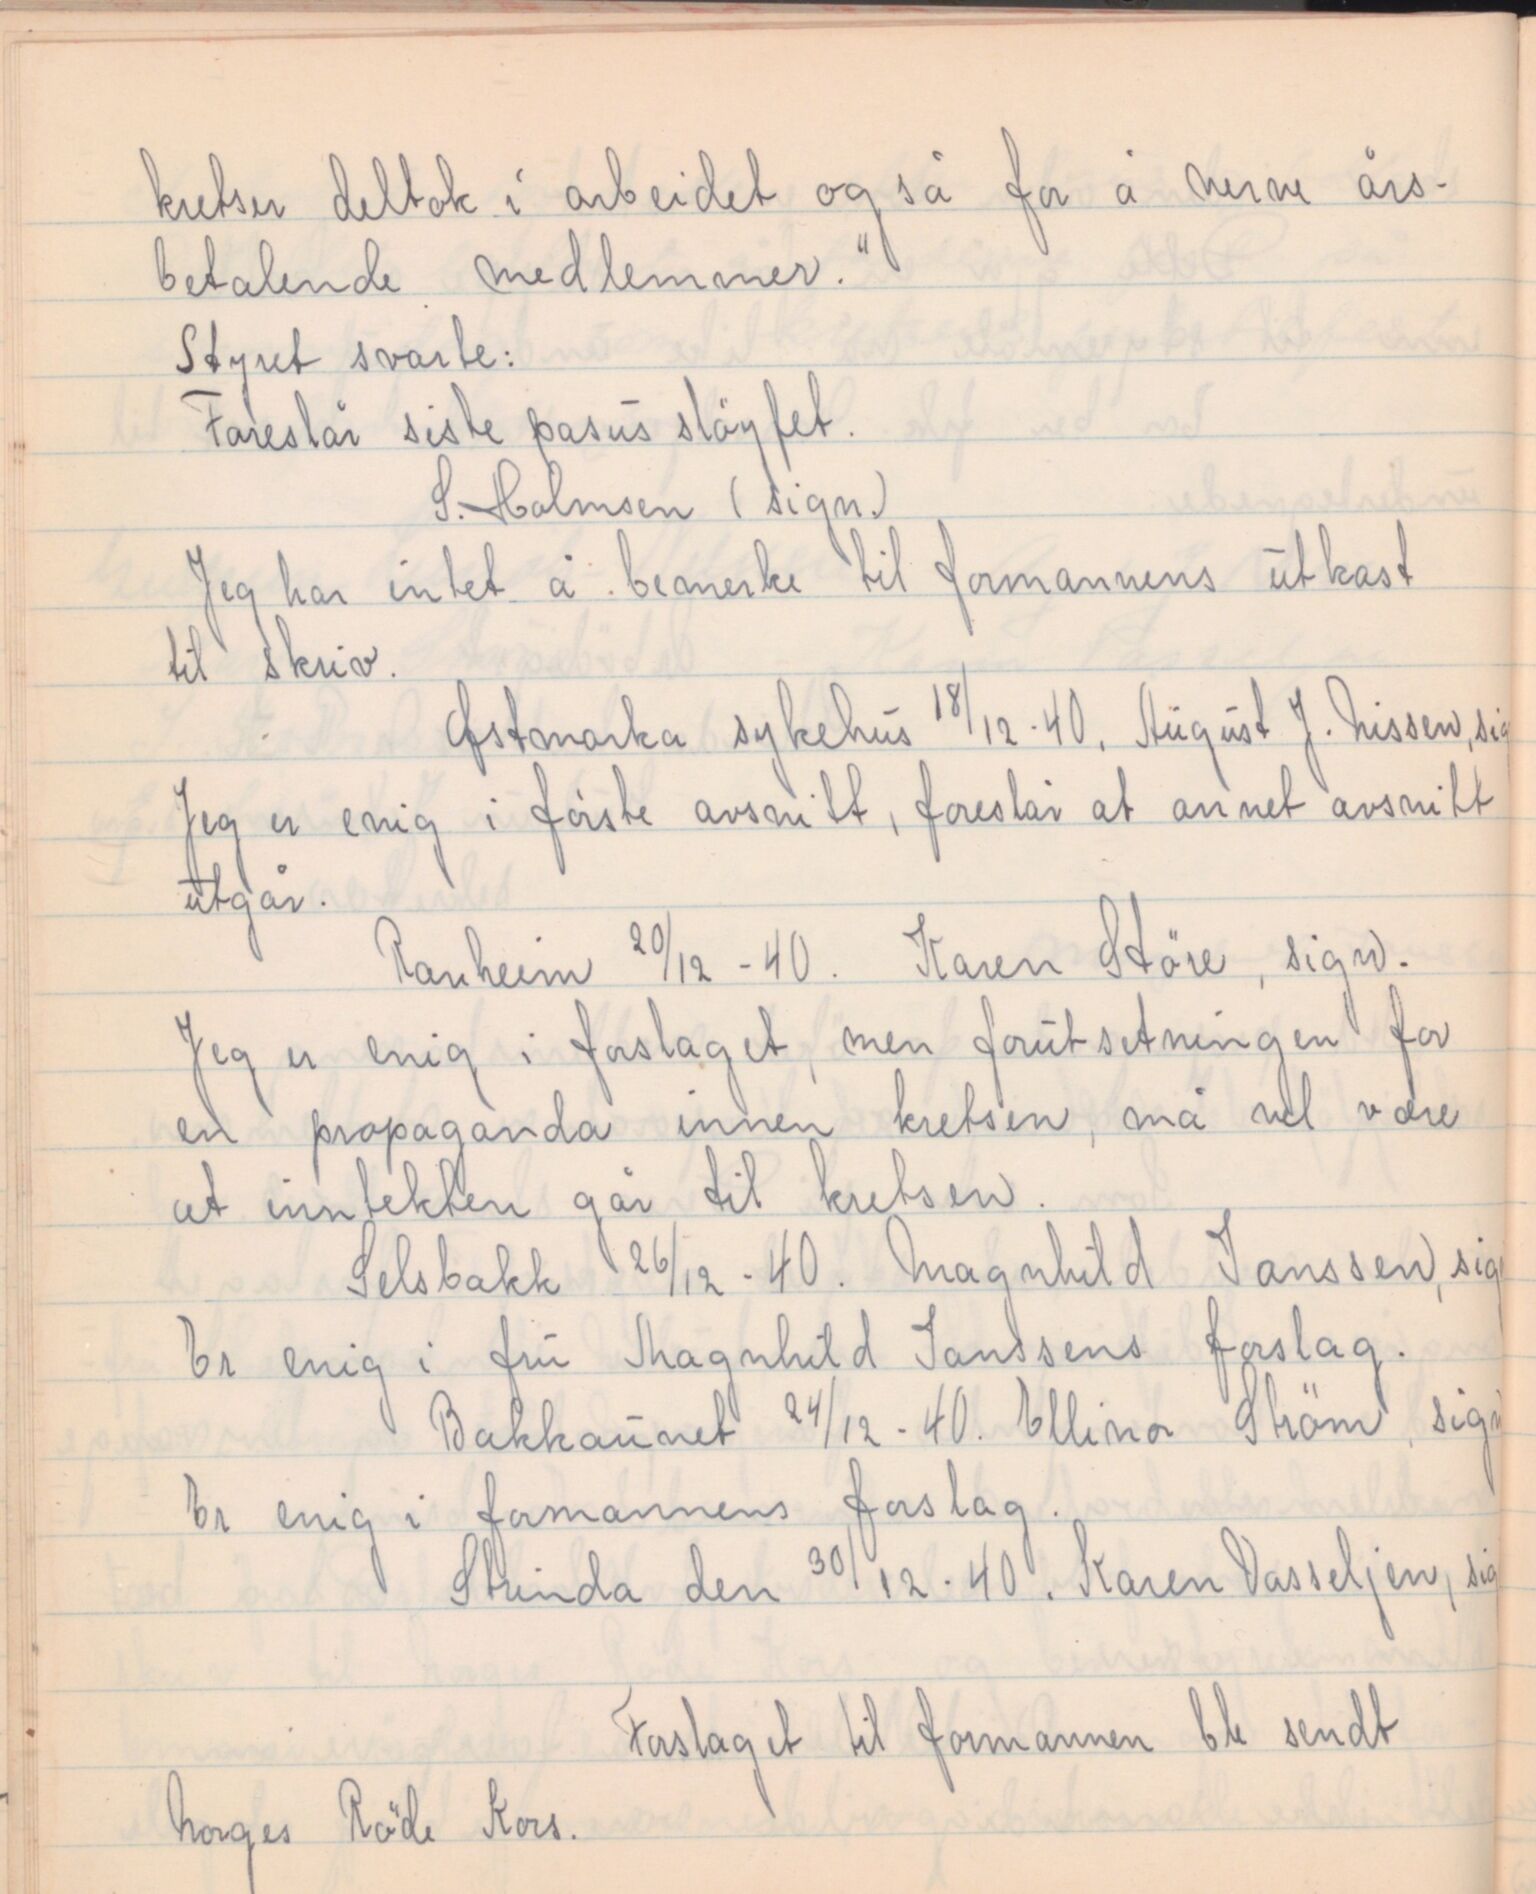 kretser deltok i arbeidet også for å verve års-
betalende medlemmer."
Styret svarte:
Foreslår siste pasus sløyfet.
S. Holmsen (sign.)
Jeg har intet å bemerke til formannens utkast
til skriv.
Østmarka sykehus 18/12-40. August J. Nissen, sig
Jeg er enig i förste avsnitt, foreslår at annet avsnitt
utgår.
Ranheim 20/12-40. Karen Störe, sign.
Jeg er enig i forslaget, men forutsetningen for
en propaganda innen kretsen, må vel være
at inntekten går til kretsen.
Selsbakk 26/12-40. Magnhild Janssen, sig
Er enig i fru Magnhild Janssens forslag.
Bakkaunet 24/12-40. Ellinor Ström, sign
Er enig i formannens forslag.
Strinda den 30/12-40. Karen Vasseljen, sig
Forslaget til formannen ble sendt
Norges Röde Kors.